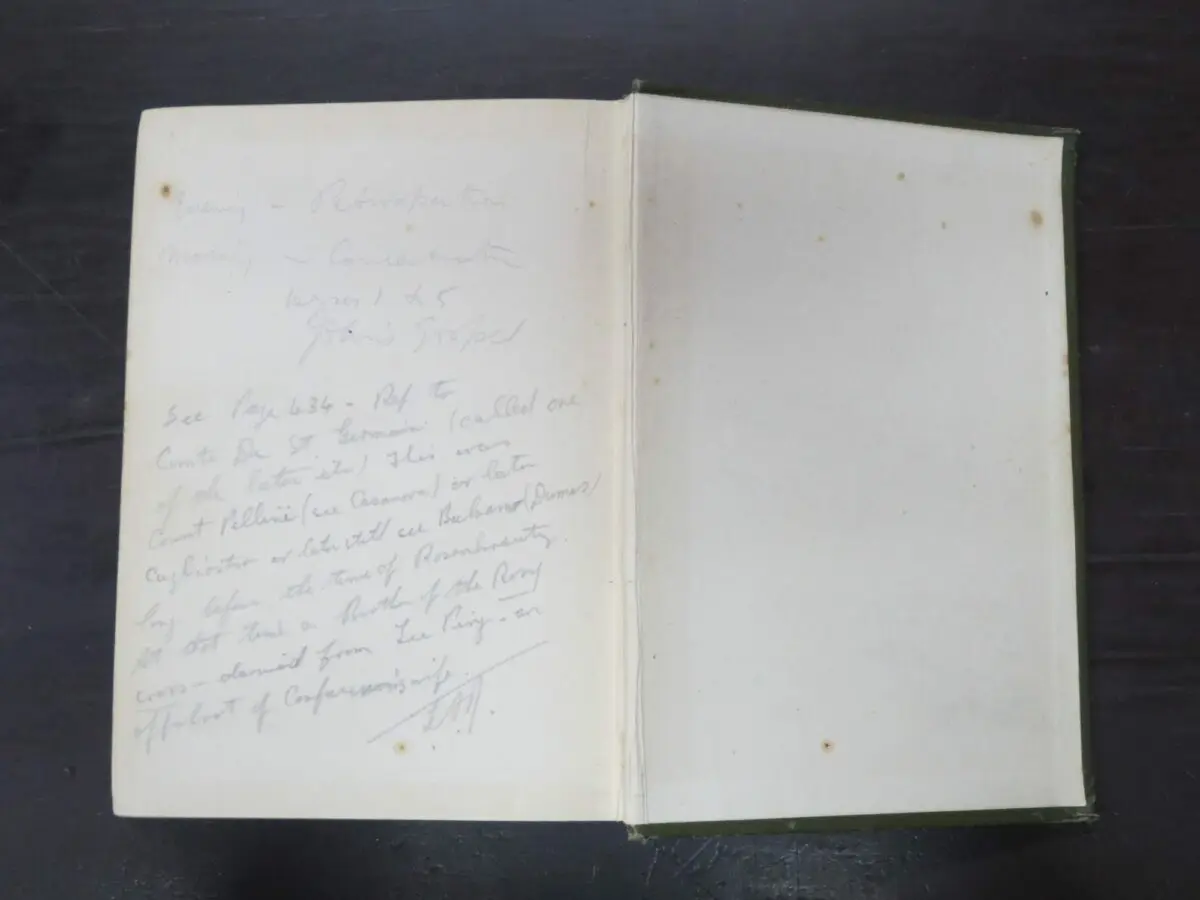 Evening - Retrospection
Morning - Concentration
verses 1 to 5
John's Gospel
See Page 434 - Ref to
Comte De St Germain (called one
of the later etc) This was
Count Pellini (see Casanova) or later
Cagliostro or later still see Balsamo (Dumas)
long before the time of Rosenkreutz.
at that time a Brother of the Rosy
cross - derived from Lee Ping - an
offshoot of